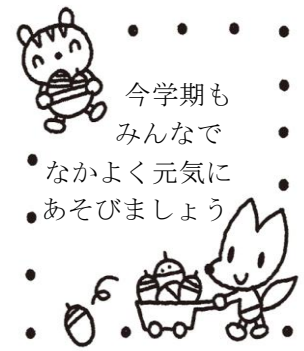 今学期も
みんなで
なかよく元気に
あそびましょう